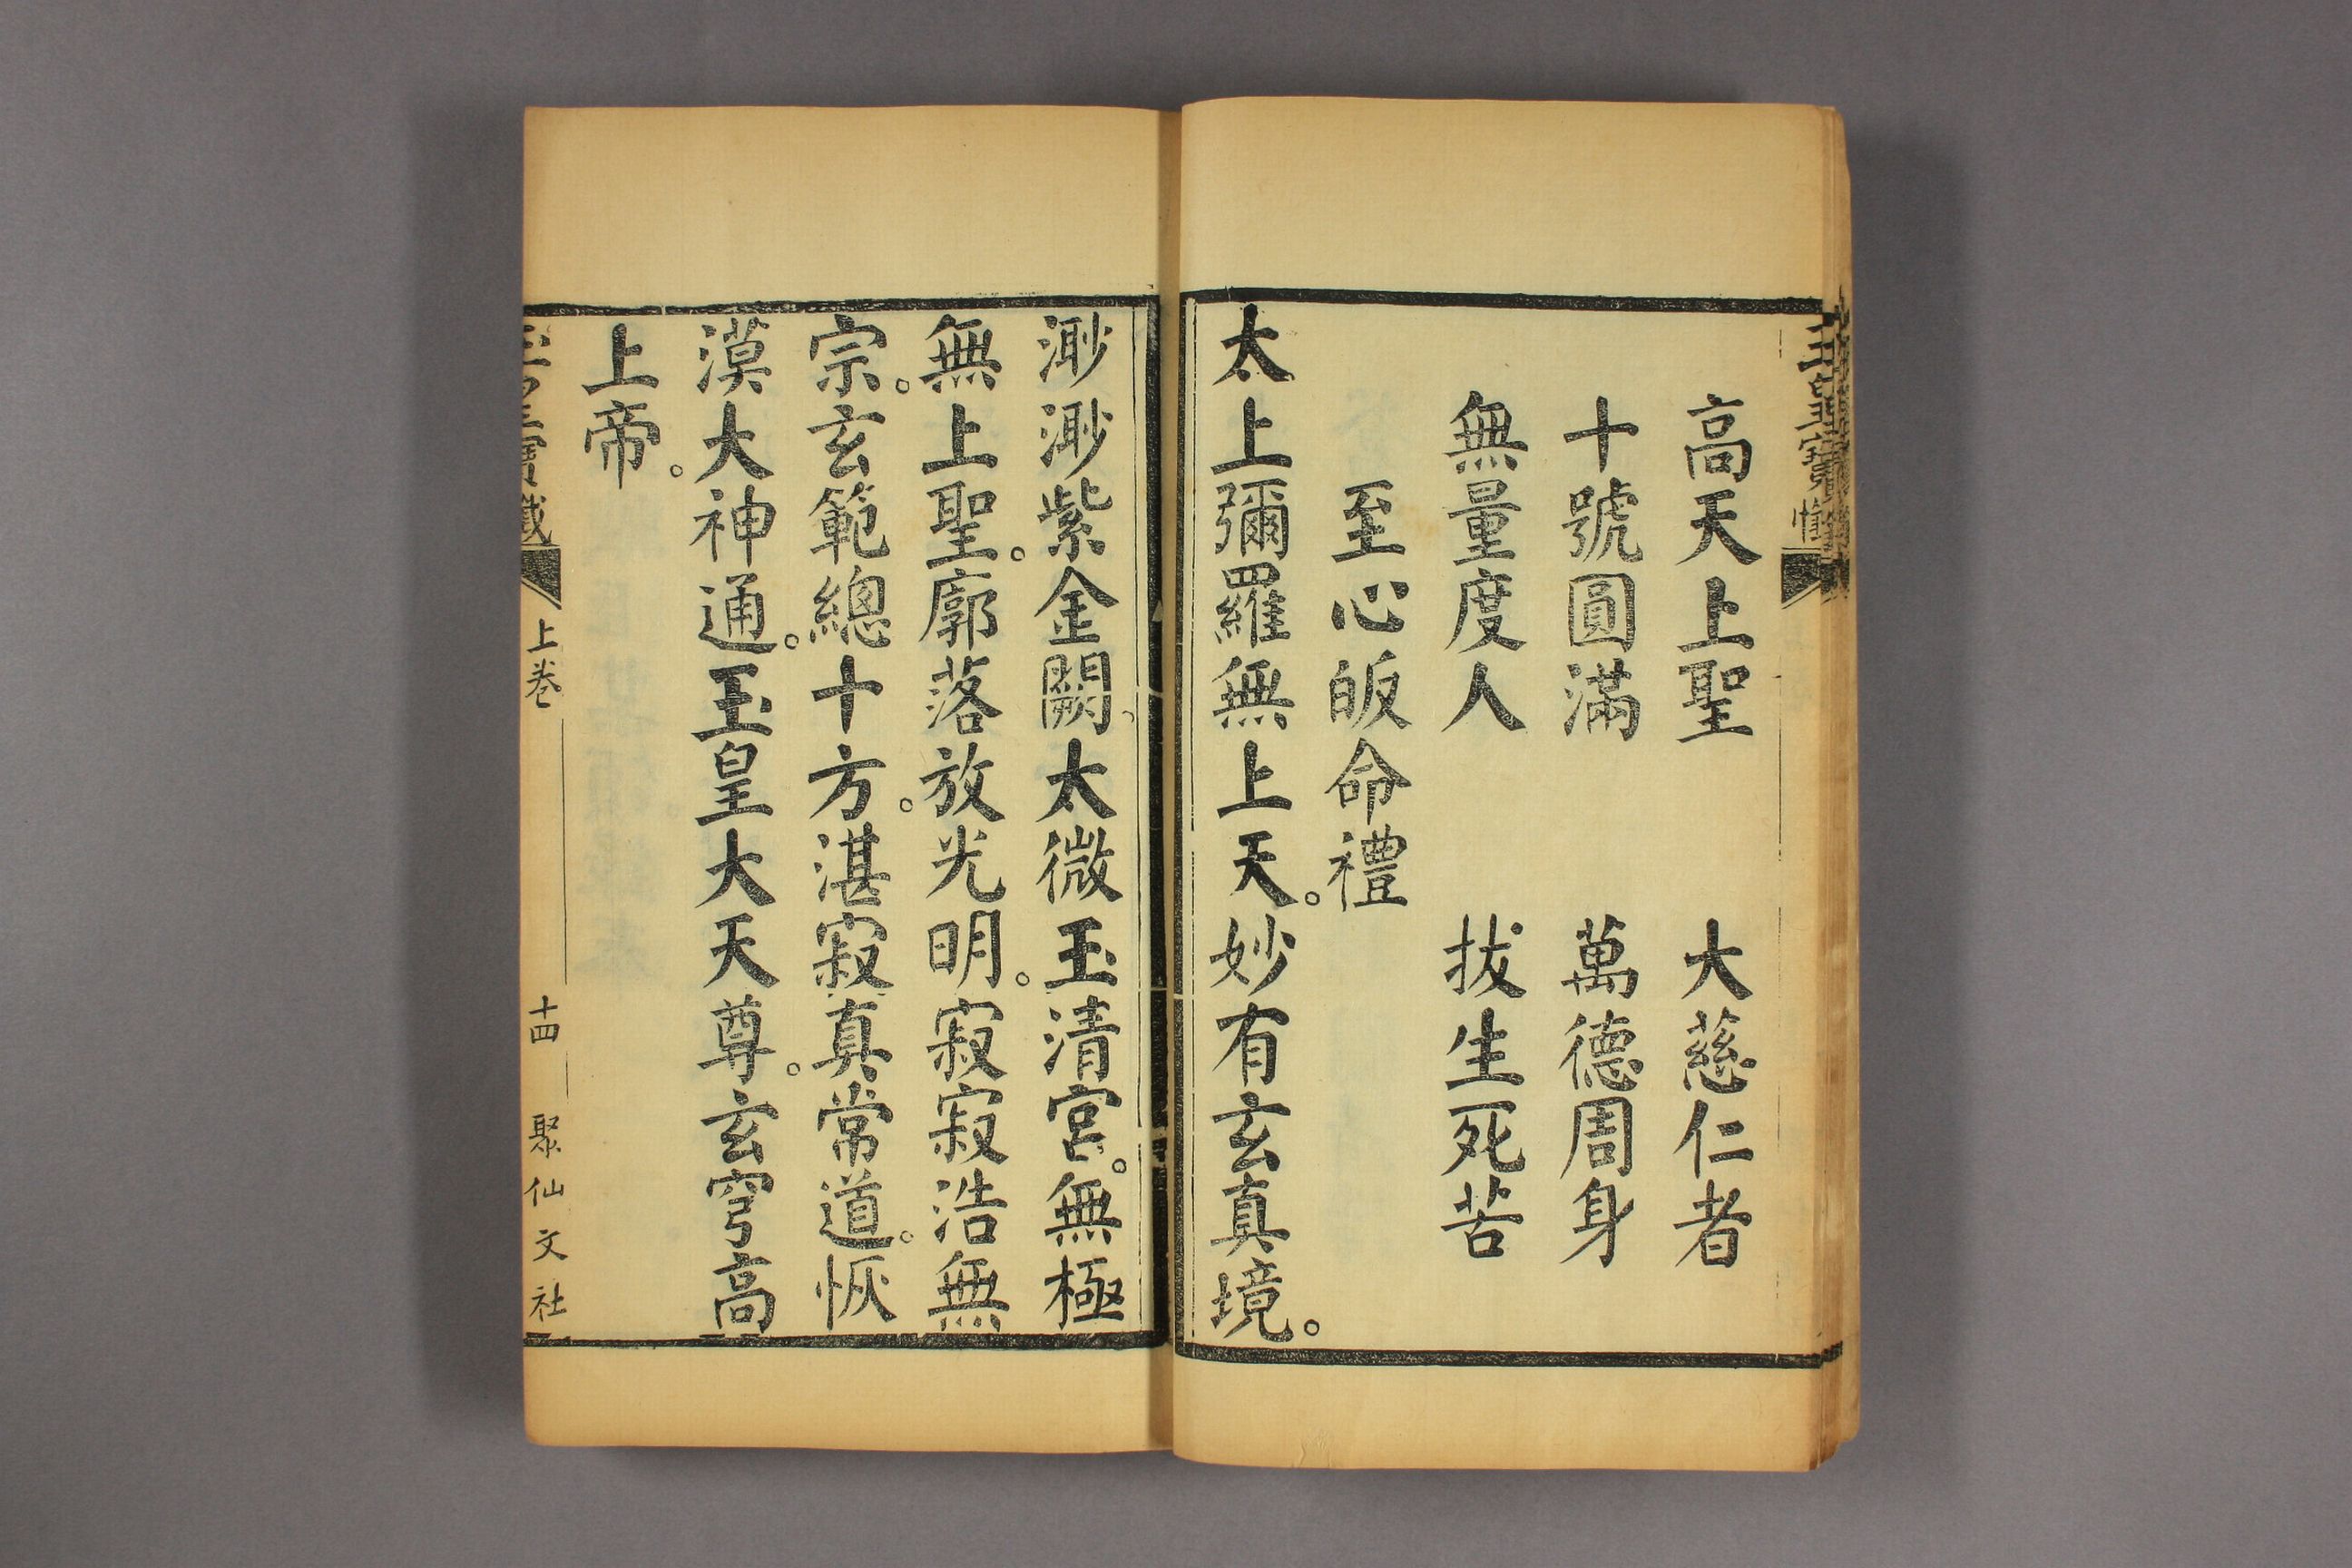 玉皇寶懺
高天上聖 大慈仁者
十號圓滿 萬德周身
無量度人 拔生死苦
至心皈命禮
太上彌羅無上天。妙有玄真境。
渺渺紫金闕。太微玉清宮。無極
無上聖。廓落放光明。寂寂浩無
宗。玄範總十方。湛寂真常道。恢
漠大神通。玉皇大天尊。玄穹高
上帝。
寶懺 上卷 十四 聚仙文社